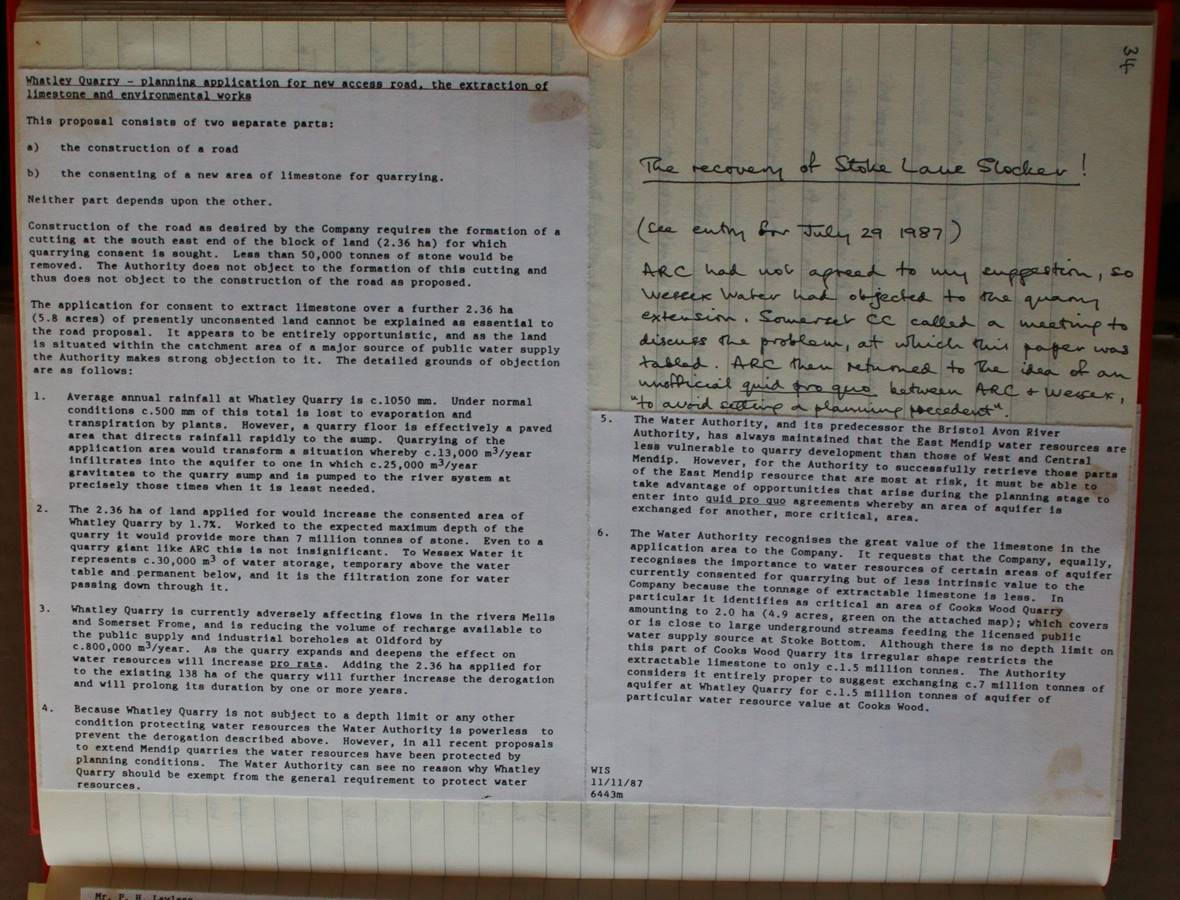 Whatley Quarry - planning application for new access road, the extraction of
limestone and environmental works
This proposal consists of two separate parts:
a) the construction of a road
b) the consenting of a new area of limestone for quarrying.
Neither part depends upon the other.
Construction of the road as desired by the Company requires the formation of a
cutting at the south east end of the block of land (2.36 ha) for which
quarrying consent is sought. Less than 50,000 tonnes of stone would be
removed. The Authority does not object to the formation of this cutting and
thus does not object to the construction of the road as proposed.
The application for consent to extract limestone over a further 2.36 ha
(5.8 acres) of presently unconsented land cannot be explained as essential to
the road proposal. It appears to be entirely opportunistic, and as the land
is situated within the catchment area of a major source of public water supply
the Authority makes strong objection to it. The detailed grounds of objection
are as follows:
1. Average annual rainfall at Whatley Quarry is c.1050 mm. Under normal
conditions c.500 mm of this total is lost to evaporation and
transpiration by plants. However, a quarry floor is effectively a paved
area that directs rainfall rapidly to the sump. Quarrying of the
application area would transform a situation whereby c.13,000 m³/year
infiltrates into the aquifer to one in which c.25,000 m³/year
gravitates to the quarry sump and is pumped to the river system at
precisely those times when it is least needed.
2. The 2.36 ha of land applied for would increase the consented area of
Whatley Quarry by 1.7%. Worked to the expected maximum depth of the
quarry it would provide more than 7 million tonnes of stone. Even to a
quarry giant like ARC this is not insignificant. To Wessex Water it
represents c.30,000 m³ of water storage, temporary above the water
table and permanent below, and it is the filtration zone for water
passing down through it.
3. Whatley Quarry is currently adversely affecting flows in the rivers Mells
and Somerset Frome, and is reducing the volume of recharge available to
the public supply and industrial boreholes at Oldford by
c.800,000 m³/year. As the quarry expands and deepens the effect on
water resources will increase pro rata. Adding the 2.36 ha applied for
to the existing 138 ha of the quarry will further increase the derogation
and will prolong its duration by one or more years.
4. Because Whatley Quarry is not subject to a depth limit or any other
condition protecting water resources the Water Authority is powerless to
prevent the derogation described above. However, in all recent proposals
to extend Mendip quarries the water resources have been protected by
planning conditions. The Water Authority can see no reason why Whatley
Quarry should be exempt from the general requirement to protect water
resources.
34
The recovery of Stoke Lane Slocker!
(See entry for July 29 1987)
ARC had not agreed to my suggestion, so
Wessex Water had objected to the quarry
extension. Somerset CC called a meeting to
discuss the problem, at which this paper was
tabled. ARC then returned to the idea of an
unofficial quid pro quo between ARC & Wessex,
"to avoid setting a planning precedent".
5. The Water Authority, and its predecessor the Bristol Avon River
Authority, has always maintained that the East Mendip water resources are
less vulnerable to quarry development than those of West and Central
Mendip. However, for the Authority to successfully retrieve those parts
of the East Mendip resource that are most at risk, it must be able to
take advantage of opportunities that arise during the planning stage to
enter into quid pro quo agreements whereby an area of aquifer is
exchanged for another, more critical, area.
6. The Water Authority recognises the great value of the limestone in the
application area to the Company. It requests that the Company, equally,
recognises the importance to water resources of certain areas of aquifer
currently consented for quarrying but of less intrinsic value to the
Company because the tonnage of extractable limestone is less. In
particular it identifies as critical an area of Cooks Wood Quarry
amounting to 2.0 ha (4.9 acres, green on the attached map); which covers
or is close to large underground streams feeding the licensed public
water supply source at Stoke Bottom. Although there is no depth limit on
this part of Cooks Wood Quarry its irregular shape restricts the
extractable limestone to only c.1.5 million tonnes. The Authority
considers it entirely proper to suggest exchanging c.7 million tonnes of
aquifer at Whatley Quarry for c.1.5 million tonnes of aquifer of
particular water resource value at Cooks Wood.
WIS
11/11/87
6443m
Mr. P. H.